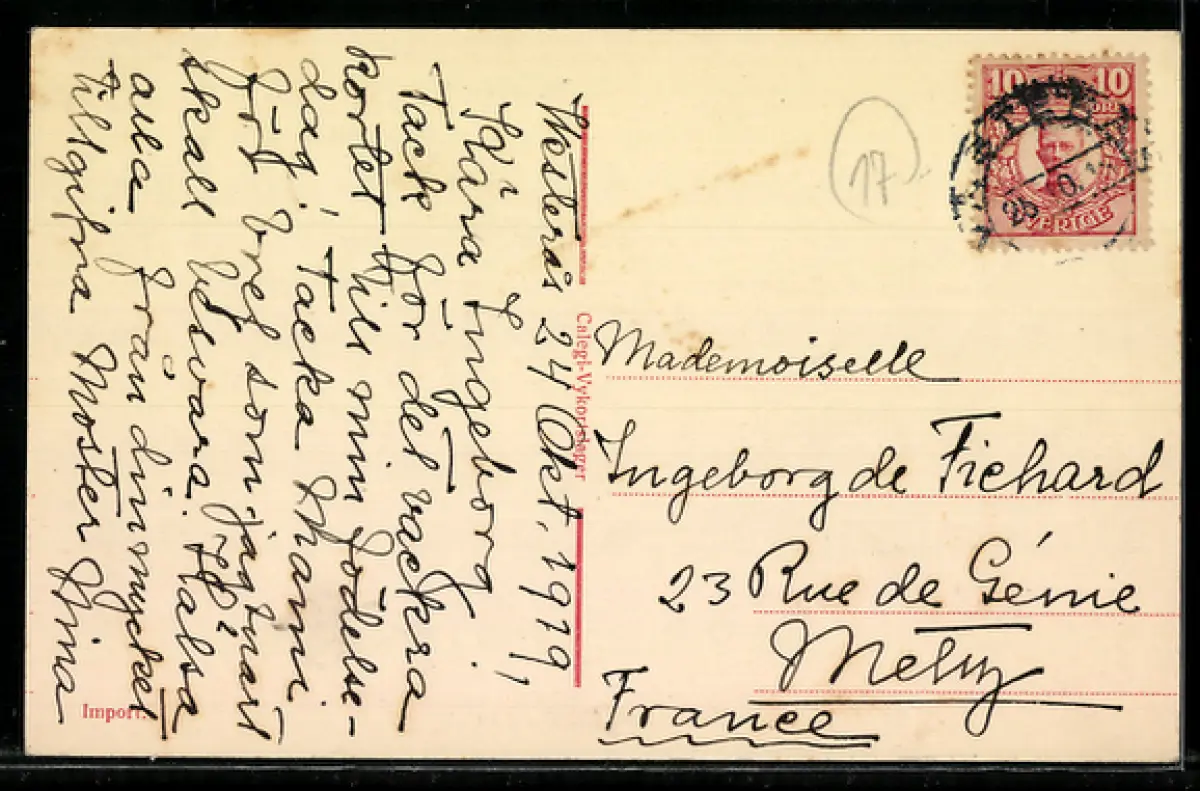 Westerås 24 Okt, 1919,
Kära Ingeborg.
Tack för det vackra
kortet till min födelse-
dag! Tacka Mami
för bref som jag snart
skall besvara. Hälsa
alla från din mycket
tillgifna Moster Nina
Calegi-Vykortslager
Import.
10 10
SVERIGE
17
Mademoiselle
Ingeborg de Fichard
23 Rue de Génie
Metz
France